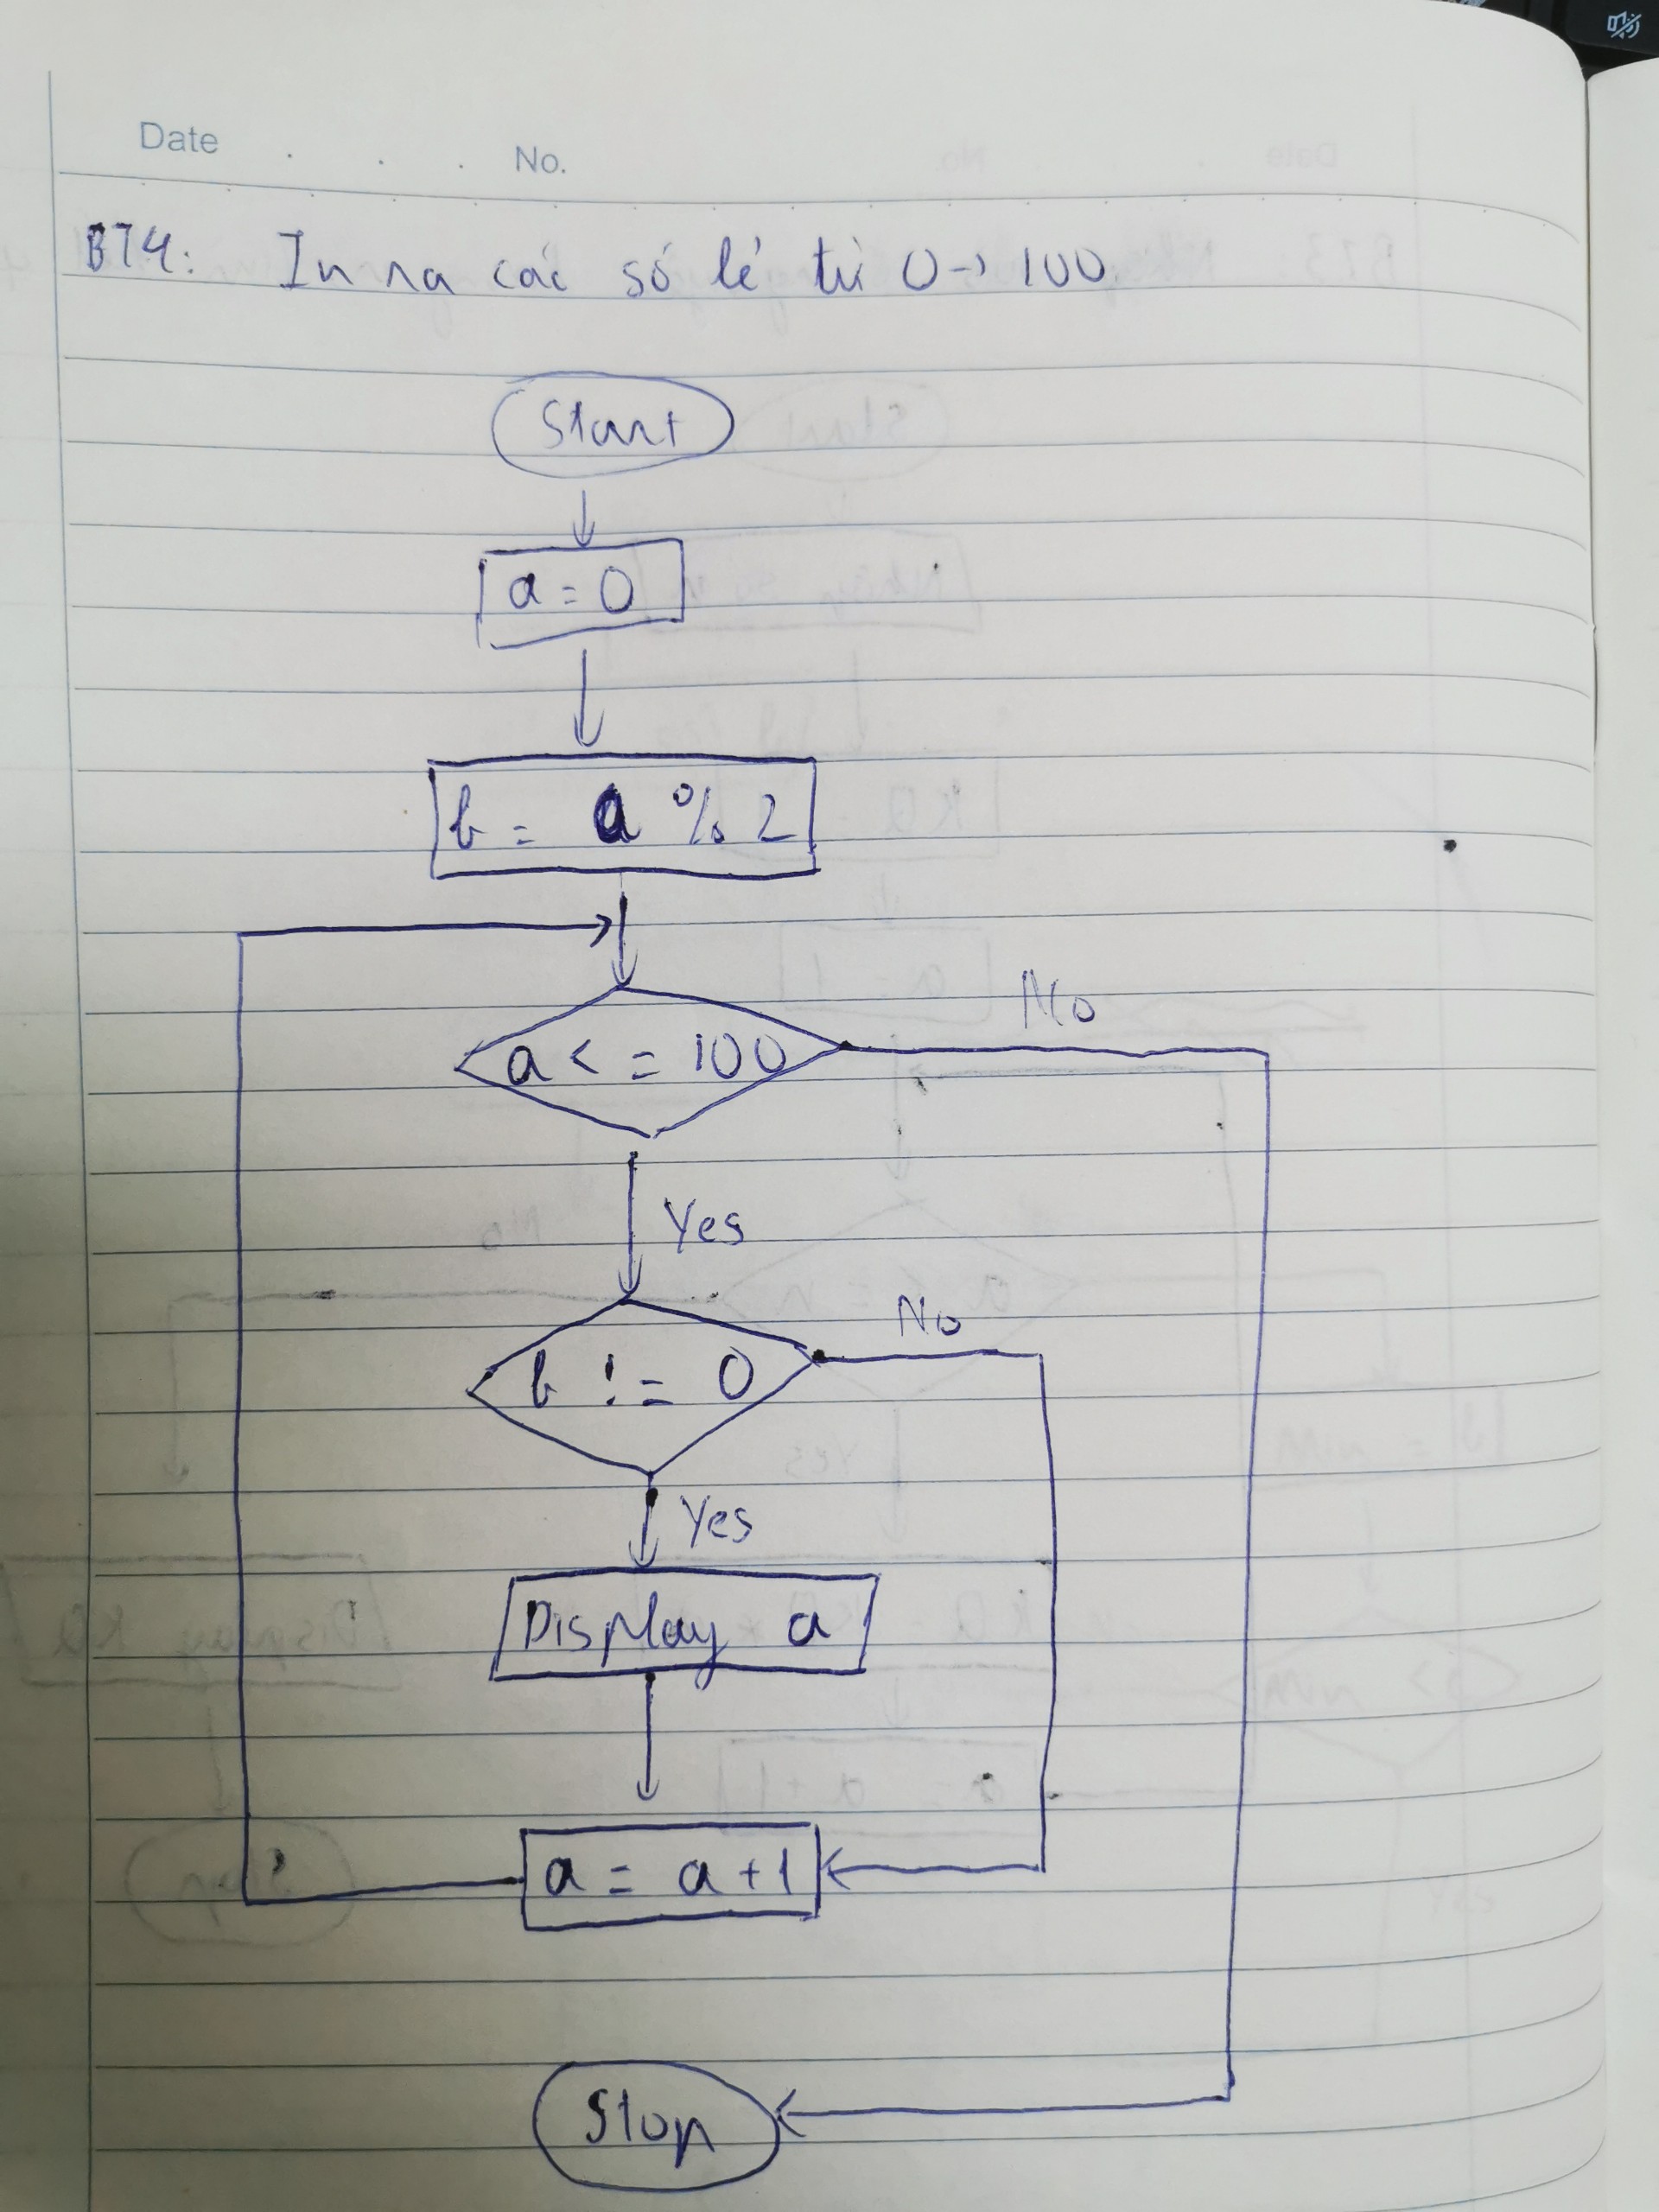 Date . . . No.
BT4: In ra các số lẻ từ 0 → 100
Start
a = 0
b = a % 2
a <= 100
No
Yes
b != 0
No
Yes
Display a
a = a + 1
Stop